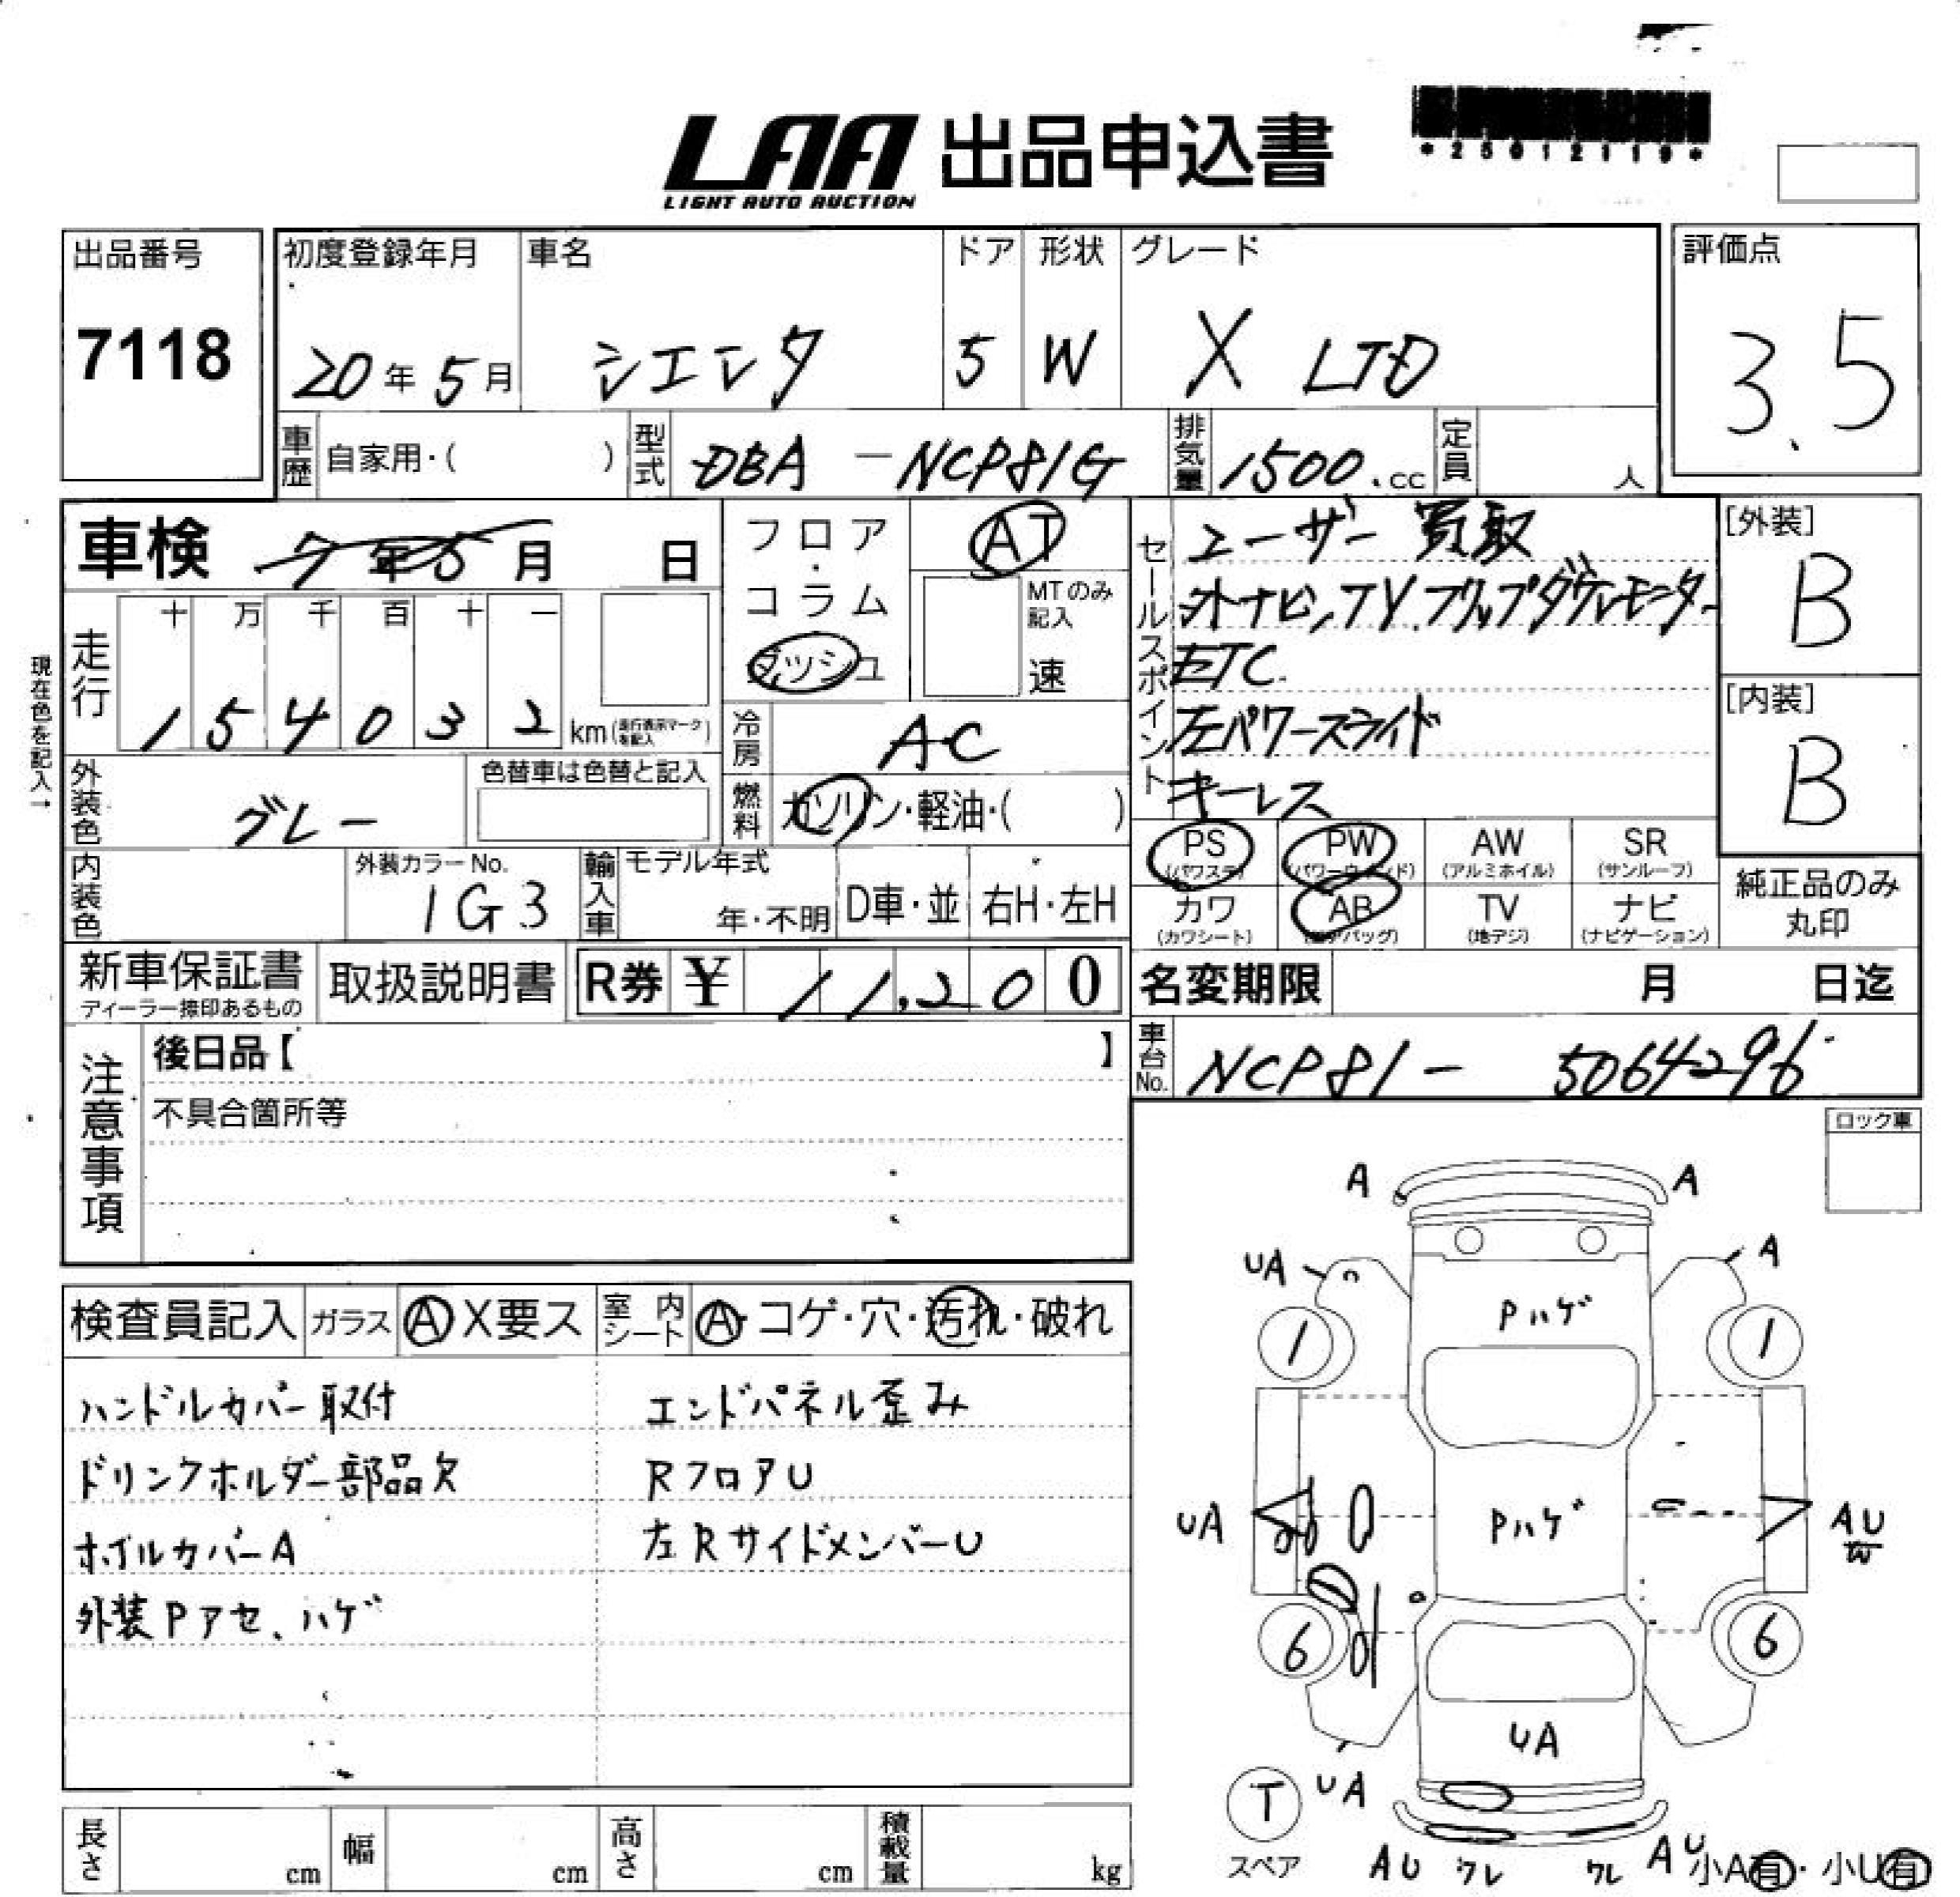 LAA 出品申込書
LIGHT AUTO AUCTION
*25012119*
出品番号 初度登録年月 車名 ドア 形状 グレード 評価点
7118 20年5月 シエンタ 5 W X LTD 3.5
車歴 自家用・( ) 型式 DBA-NCP81G 排気量 1500.cc 定員 人
車検 7年5月 日
フロア・コラム ダッシュ
AT
MTのみ記入 速
セールスポイント
ユーザー買取
外ナビ,TV.フリップダウンモニター
ETC
左パワースライド
キーレス
[外装]
B
[内装]
B
現在色を記入→
走行 十 万 千 百 十 一
1 5 4 0 3 2 km(走行表示マークを記入)
冷房 AC
外装色 グレー 色替車は色替と記入
燃料 ガソリン・軽油・( )
PS (パワステ) PW (パワーウインド) AW (アルミホイル) SR (サンルーフ)
カワ (カワシート) AB (エアバッグ) TV (地デジ) ナビ (ナビゲーション)
純正品のみ丸印
内装色 外装カラーNo. 1G3
輸入車 モデル年式 年・不明 D車・並 右H・左H
新車保証書 ディーラー捺印あるもの 取扱説明書 R券 ¥ 11,200
名変期限 月 日迄
車台No. NCP81-5064296
注意事項
後日品【 】
不具合箇所等
ロック車
検査員記入 ガラス A X要ス 室内シート A・コゲ・穴・汚れ・破れ
ハンドルカバー取付 エンドパネル歪み
ドリンクホルダー部品欠 RフロアU
ホイルカバーA 左RサイドメンバーU
外装Pアセ、ハゲ
A A
UA A
Pハゲ
1 1
UA Pハゲ AU W
6 6
UA
T UA
スペア AU ワレ ワレ AU
小A有・小U有
長さ cm 幅 cm 高さ cm 積載量 kg